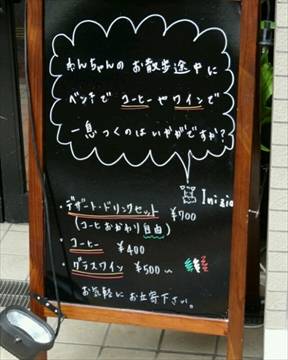 わんちゃんのお散歩途中に
ベンチで コーヒーやワインで
一息つくのはいかがですか?
Inizio
・デザート・ドリンクセット ¥700
(コーヒーおかわり自由)
・コーヒー ¥400
・グラスワイン ¥500〜
お気軽にお立寄下さい。